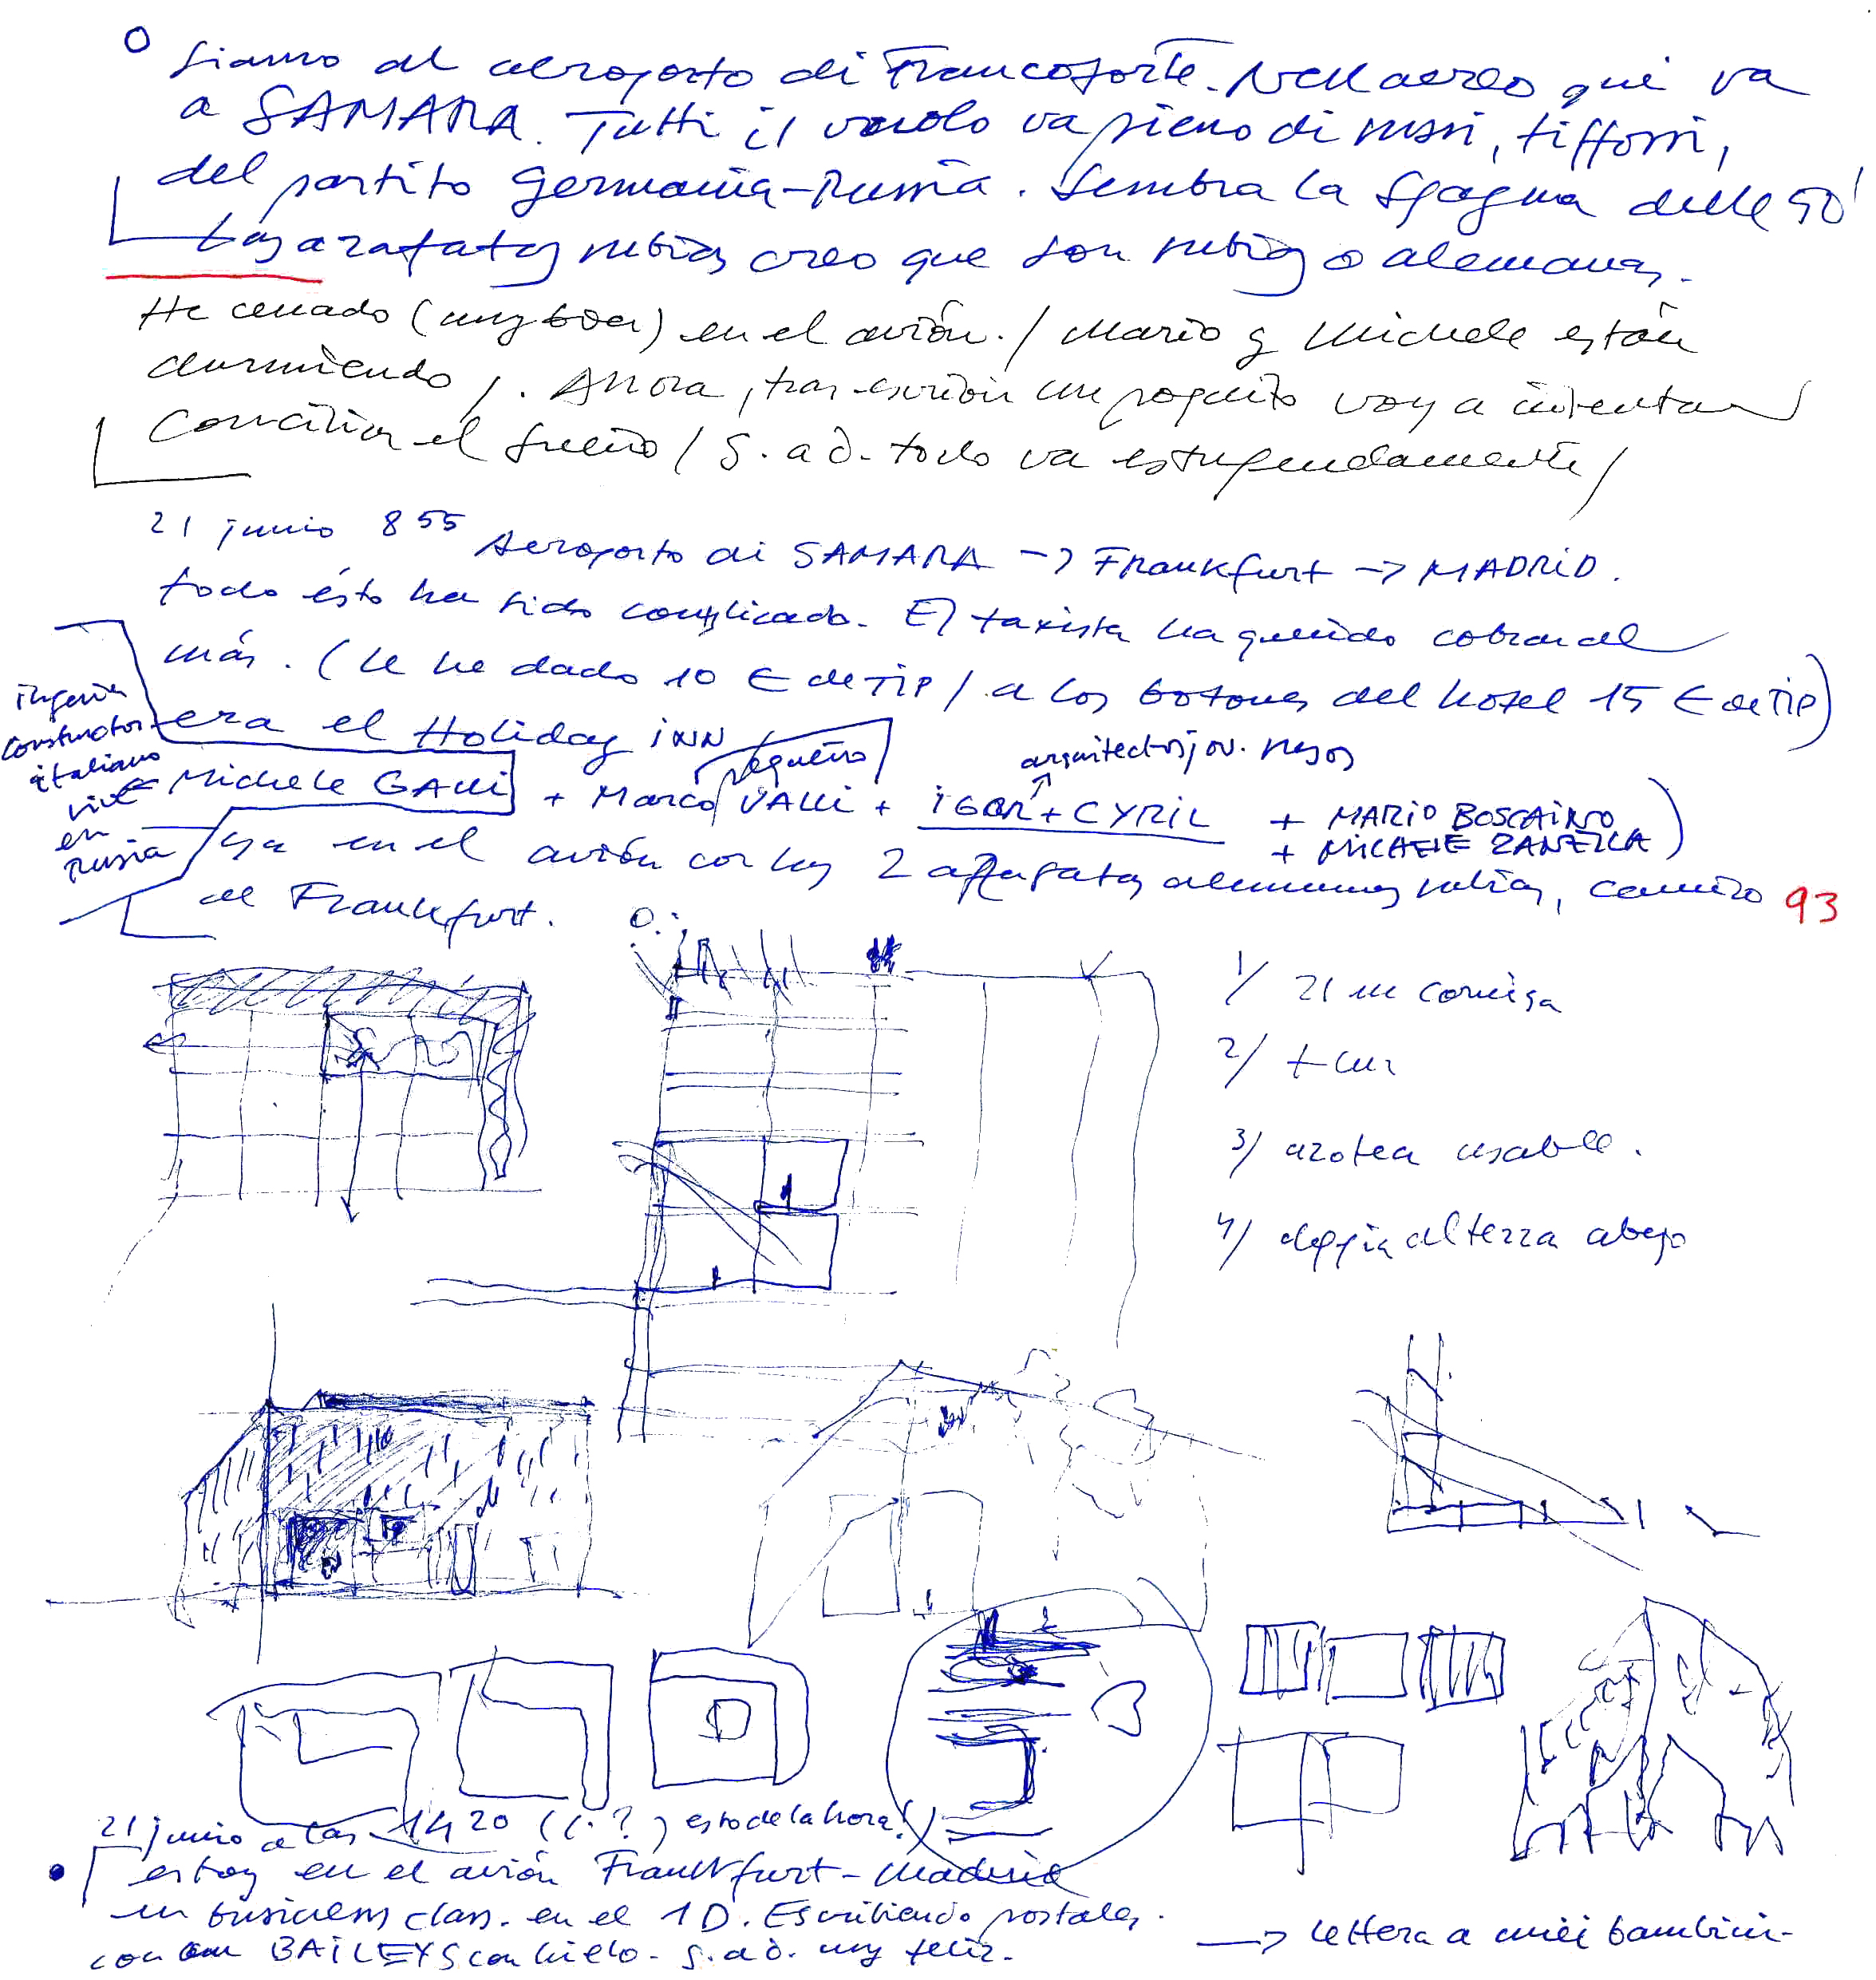 Siamo al aeroporto di Francoforte. Nell aereo qui va
a SAMARA. Tutti il vuolo va pieno di russi, tiffossi,
del partito Germania-Russia. Sembra la Spagna delle 50'
Las azafatas rubias creo que son rubias o alemanas.
He cenado (muy bien) en el avión. / Mario y Michele están
durmiendo /. Ahora, tras escribir un poquito voy a intentar
conciliar el sueño / G. a D. todo va estupendamente /
21 junio 8 55 Aeroporto di SAMARA -> Frankfurt -> MADRID.
todo ésto ha sido complicado. El taxista ha querido cobrar el
más. (le he dado 10 € de TIP / a los botones del hotel 15 € de TIP)
era el Holiday INN
constructor
italiano
vive
en
Rusia
pequeño
arquitectos jov. rusos
Michele GALLI + Marco VALLI + IGOR + CYRIL + MARIO BOSCAINO
+ MICHELE )
ya en el avión con las 2 azafatas alemanas rubias, camino
de Frankfurt.
93
1/ 21 m cornisa
2/
3/ azotea usable.
4/ doppia altezza abajo
21 junio a las 14 20 (¿?) esto de la hora!)
estoy en el avión Frankfurt - Madrid
en business class. en el 1D. Escribiendo postales.
con un BAILEYS con hielo. G. a D. muy feliz.
-> lettera a miei bambini.